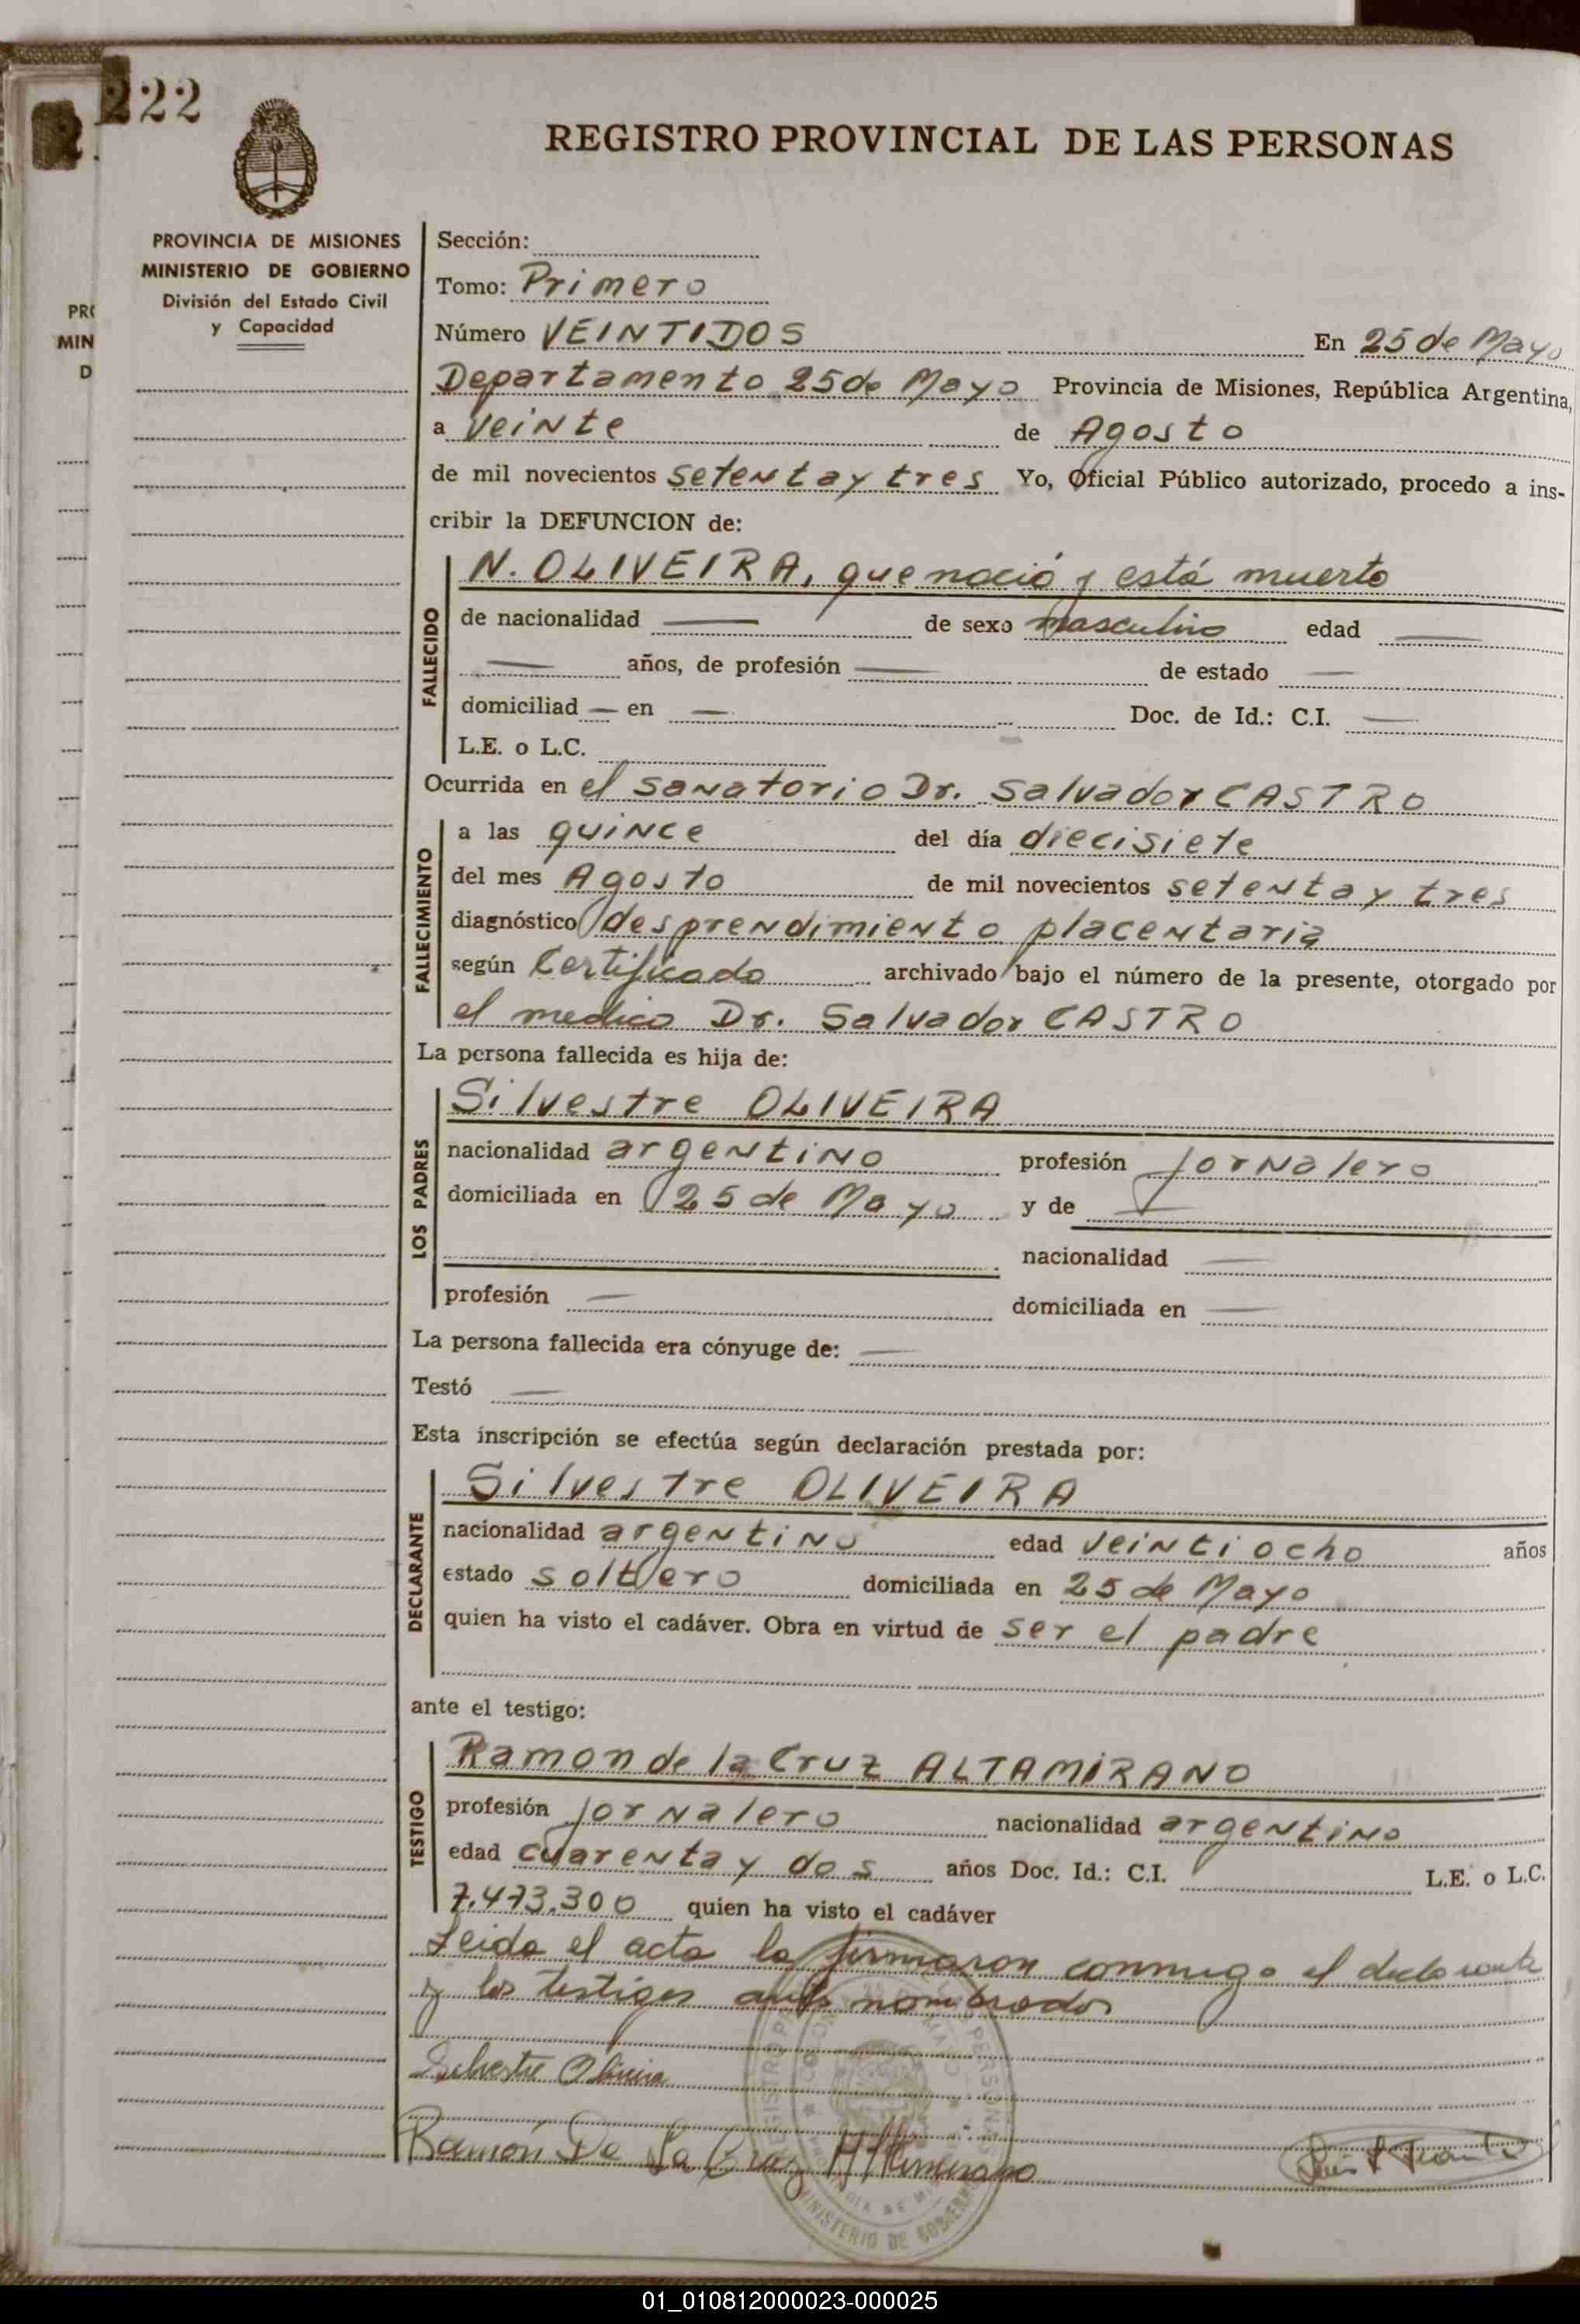 222
REGISTRO PROVINCIAL DE LAS PERSONAS
PROVINCIA DE MISIONES
MINISTERIO DE GOBIERNO
División del Estado Civil
y Capacidad
PRO
MIN
D
Sección:
Tomo: Primero
Número VEINTIDOS En 25 de Mayo
Departamento 25 de Mayo Provincia de Misiones, República Argentina,
a veinte de Agosto
de mil novecientos setenta y tres Yo, Oficial Público autorizado, procedo a ins-
cribir la DEFUNCION de:
FALLECIDO
N. OLIVEIRA, que nació y está muerto
de nacionalidad — de sexo masculino edad —
— años, de profesión — de estado —
domiciliad — en — Doc. de Id.: C.I. —
L.E. o L.C.
Ocurrida en el sanatorio Dr. Salvador CASTRO
FALLECIMIENTO
a las quince del día diecisiete
del mes Agosto de mil novecientos setenta y tres
diagnóstico desprendimiento placentaria
según Certificado archivado bajo el número de la presente, otorgado por
el medico Dr. Salvador CASTRO
La persona fallecida es hija de:
LOS PADRES
Silvestre OLIVEIRA
nacionalidad argentino profesión jornalero
domiciliada en 25 de Mayo y de —
nacionalidad —
profesión — domiciliada en —
La persona fallecida era cónyuge de: —
Testó —
Esta inscripción se efectúa según declaración prestada por:
DECLARANTE
Silvestre OLIVEIRA
nacionalidad argentino edad veintiocho años
estado soltero domiciliada en 25 de Mayo
quien ha visto el cadáver. Obra en virtud de ser el padre
ante el testigo:
TESTIGO
Ramon de la Cruz ALTAMIRANO
profesión jornalero nacionalidad argentino
edad cuarenta y dos años Doc. Id.: C.I. L.E. o L.C.
7.473.300 quien ha visto el cadáver
Leida el acta la firmaron conmigo el declarante
y los testigos antes nombrados
Silvestre Oliveira
Ramón De La Cruz Altamirano
MINISTERIO DE GOBIERNO
01_010812000023-000025